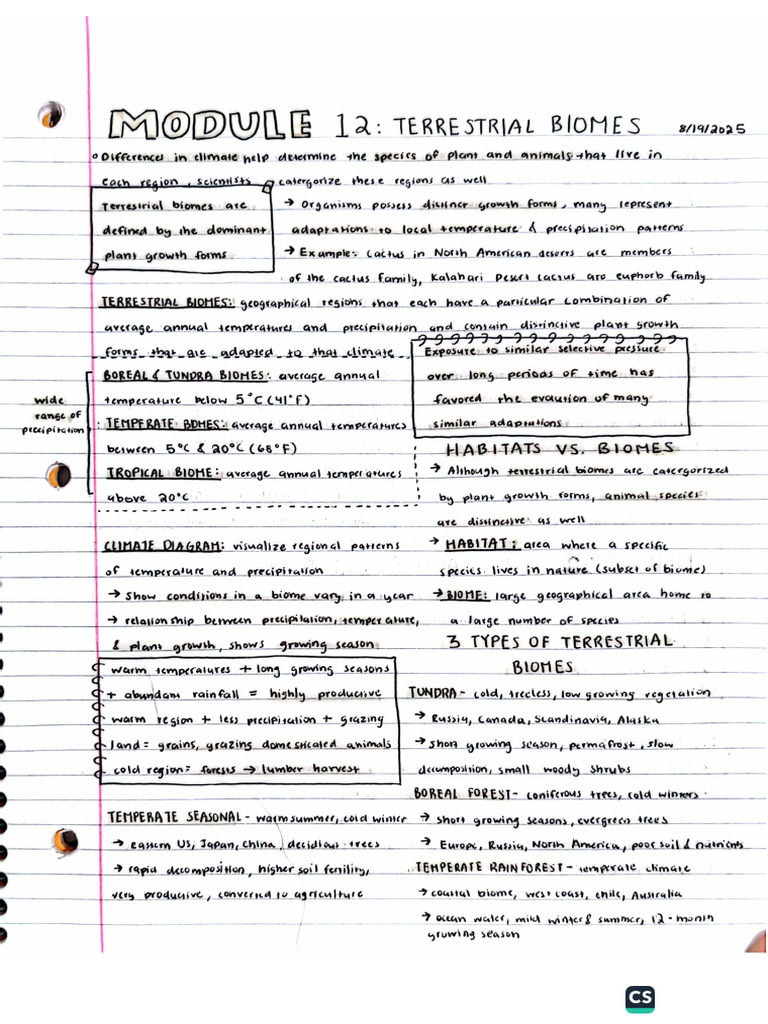 MODULE 12: TERRESTRIAL BIOMES 8/19/2025
Differences in climate help determine the species of plant and animals that live in
each region, scientists catergorize these regions as well
Terrestrial biomes are
defined by the dominant
plant growth forms
→ Organisms possess distinct growth forms, many represent
adaptations to local temperature & precipitation patterns
→ Example: Cactus in North American deserts are members
of the cactus family, Kalahari Desert cactus are euphorb family
TERRESTRIAL BIOMES: geographical regions that each have a particular combination of
average annual temperatures and precipitation and contain distinctive plant growth
forms that are adapted to that climate
wide
range of
precipitation
BOREAL & TUNDRA BIOMES: average annual
temperature below 5°C (41°F)
TEMPERATE BIOMES: average annual temperatures
between 5°C & 20°C (68°F)
TROPICAL BIOME: average annual temperatures
above 20°C
Exposure to similar selective pressure
over long periods of time has
favored the evolution of many
similar adaptations
HABITATS VS. BIOMES
→ Although terrestrial biomes are catergorized
by plant growth forms, animal species
are distinctive as well
→ HABITAT: area where a specific
species lives in nature (subset of biome)
→ BIOME: large geographical area home to
a large number of species
CLIMATE DIAGRAM: visualize regional patterns
of temperature and precipitation
→ Show conditions in a biome vary in a year
→ relationship between precipitation, temperature,
& plant growth, shows growing season
warm temperatures + long growing seasons
+ abundant rainfall = highly productive
warm region + less precipitation + grazing
land = grains, grazing domesticated animals
cold region = forests → lumber harvest
TEMPERATE SEASONAL - warm summer, cold winter
→ eastern US, Japan, China, decidious trees
→ rapid decomposition, higher soil fertility,
very productive, converted to agriculture
3 TYPES OF TERRESTRIAL
BIOMES
TUNDRA - cold, treeless, low growing vegetation
→ Russia, Canada, Scandinavia, Alaska
→ short growing season, permafrost, slow
decomposition, small woody shrubs
BOREAL FOREST - coniferous trees, cold winters
→ short growing seasons, evergreen trees
→ Europe, Russia, North America, poor soil & nutrients
TEMPERATE RAINFOREST - temperate climate
→ coastal biome, west coast, chile, Australia
→ ocean water, mild winter & summer, 12-month
growing season
CS